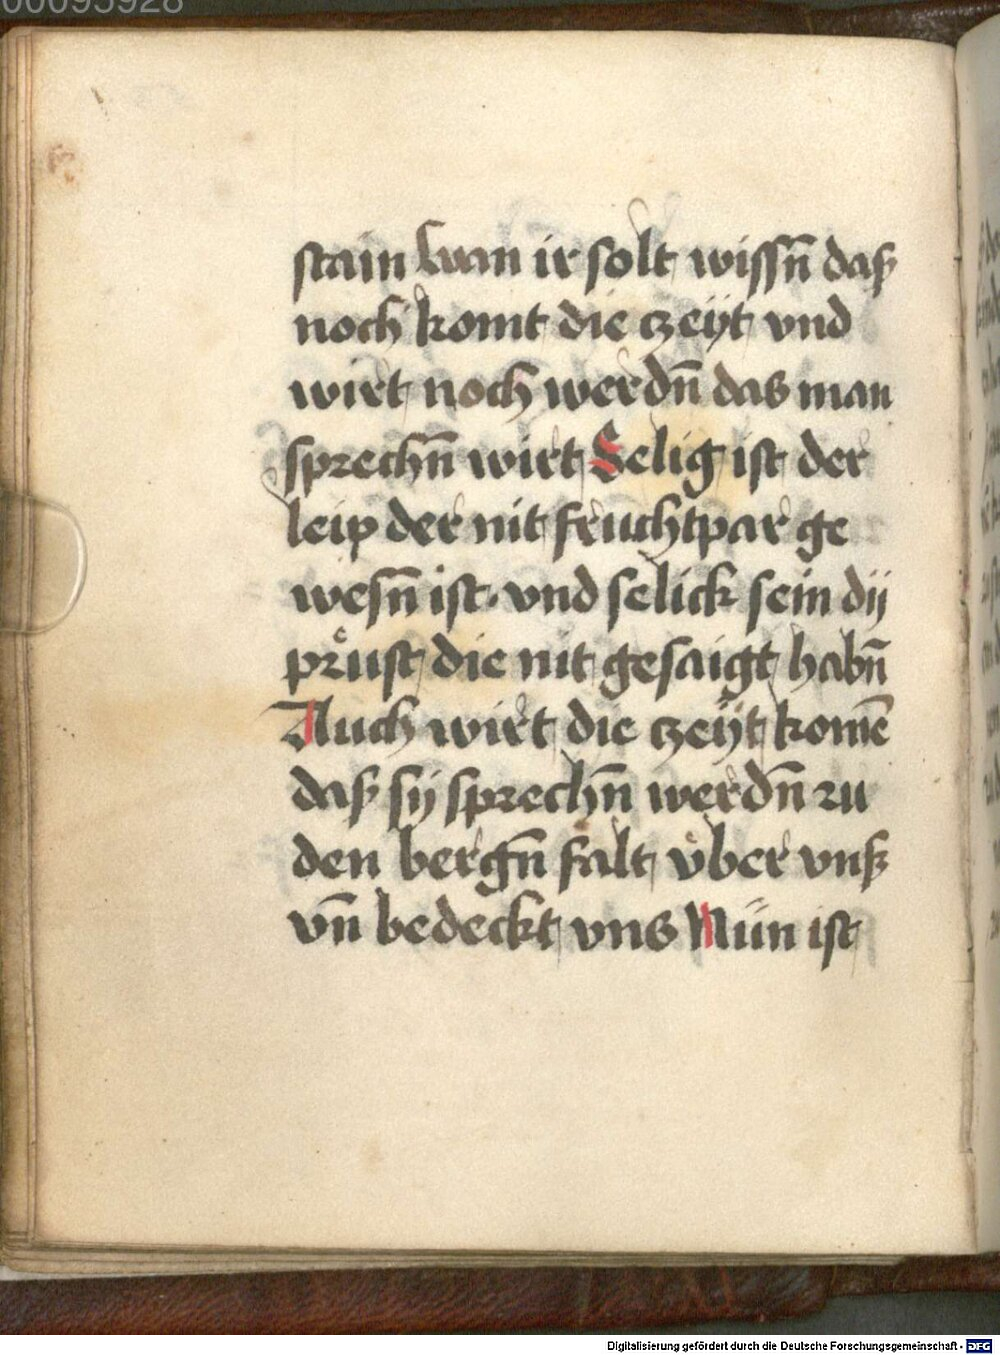 00095928
stain wan ir solt wissn̄ daß
noch komt die czeÿt vnd
wirt noch werdn̄ das man
sprechn̄ wirt Selig ist der
leip der nit fruchtpar ge
wesn̄ ist· vnd selick sein dij
průst die nit gesaigt habn̄
Auch wirt die czeÿt komē
daß sÿ sprechn̄ werdn̄ zu
den bergn̄ falt v̊ber vnß
vn̄ bedeckt vns Nün ist
Digitalisierung gefördert durch die Deutsche Forschungsgemeinschaft - DFG